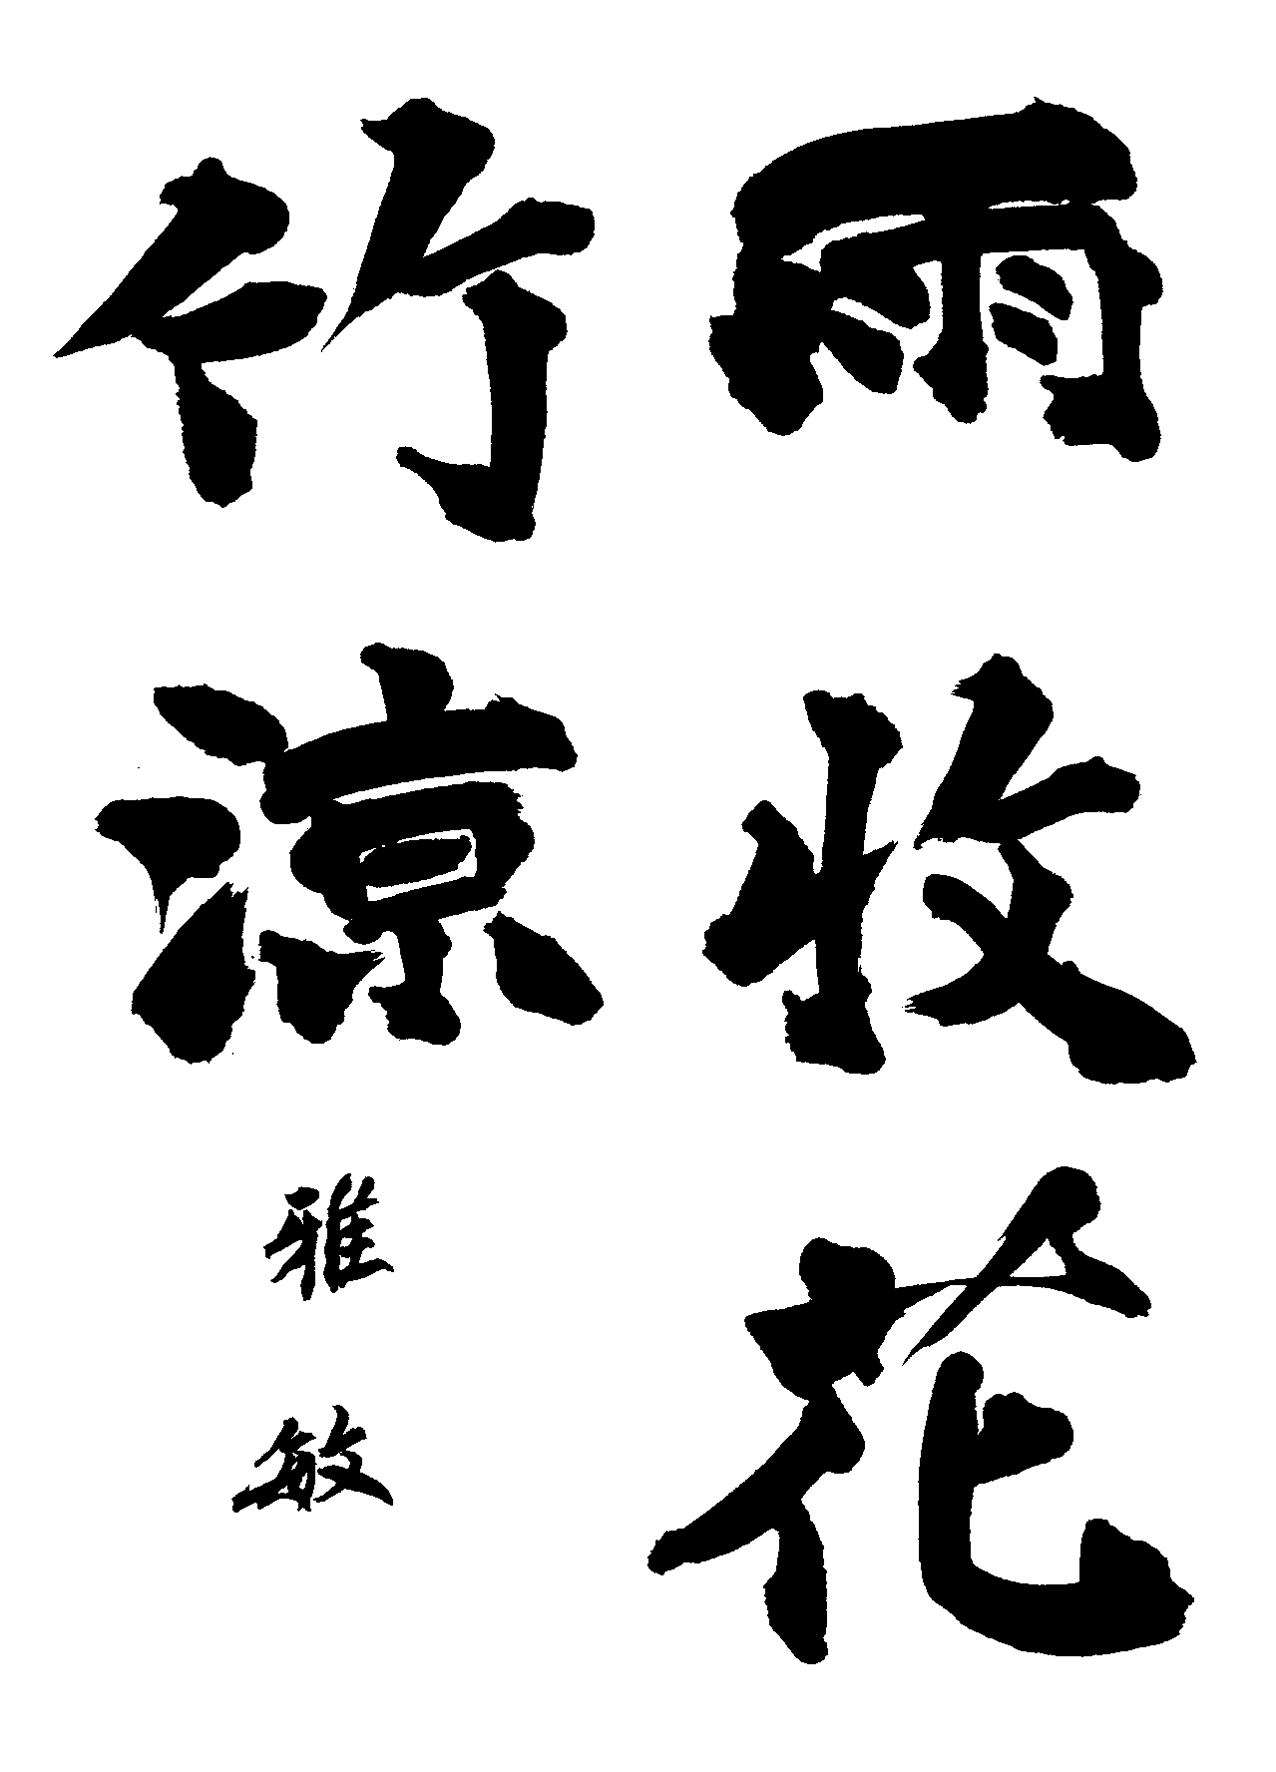 雨收花
竹涼
雅敏